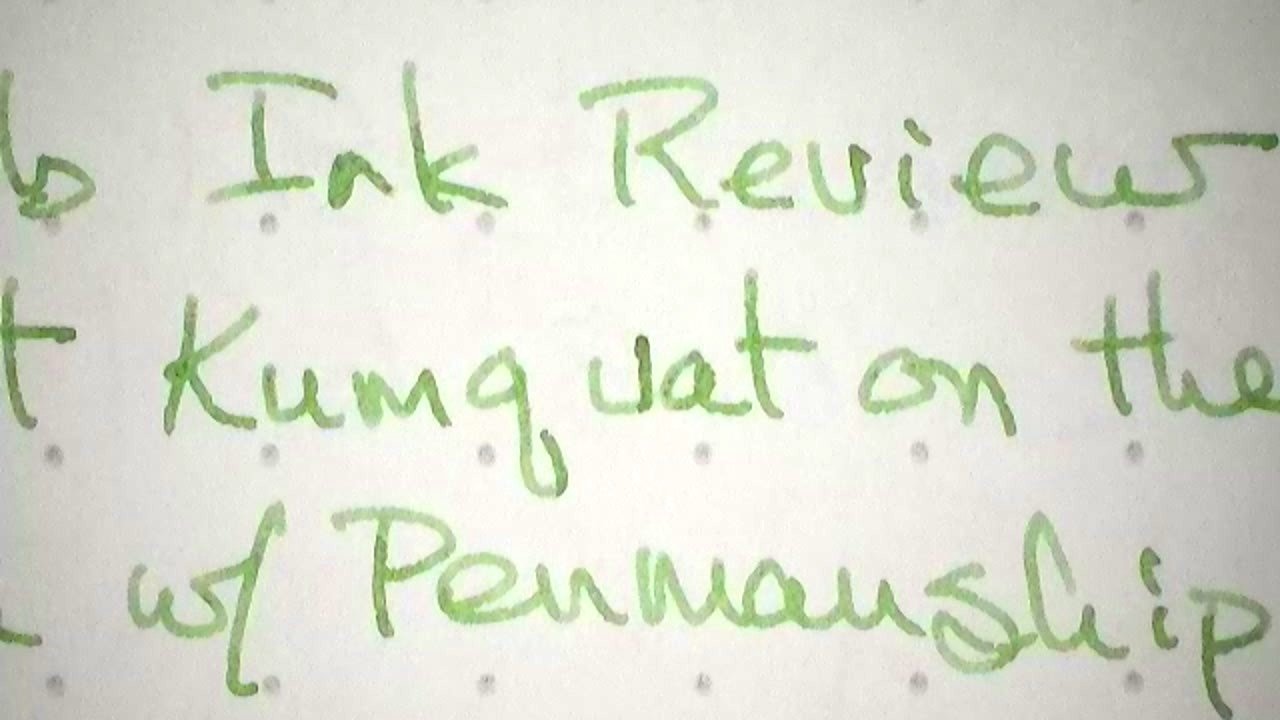 b Ink Review
t Kumquat on the
w/ Penmanship